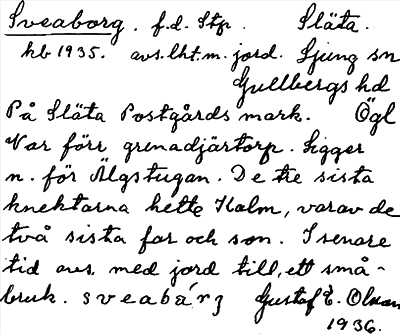 Sveaborg. f.d. Stp. Släta.
hb 1935. avs. lht. m. jord. Ljung sn
Gullbergs hd
På Släta Postgårds mark. Ögl
Var förr grenadjärtorp. Ligger
n. för Älgstugan. De tre sista
knektarna hette Kalm, varav de
två sista far och son. I senare
tid avs. med jord till, ett små-
bruk. sveabárg Gustaf E. Olsson
1936.